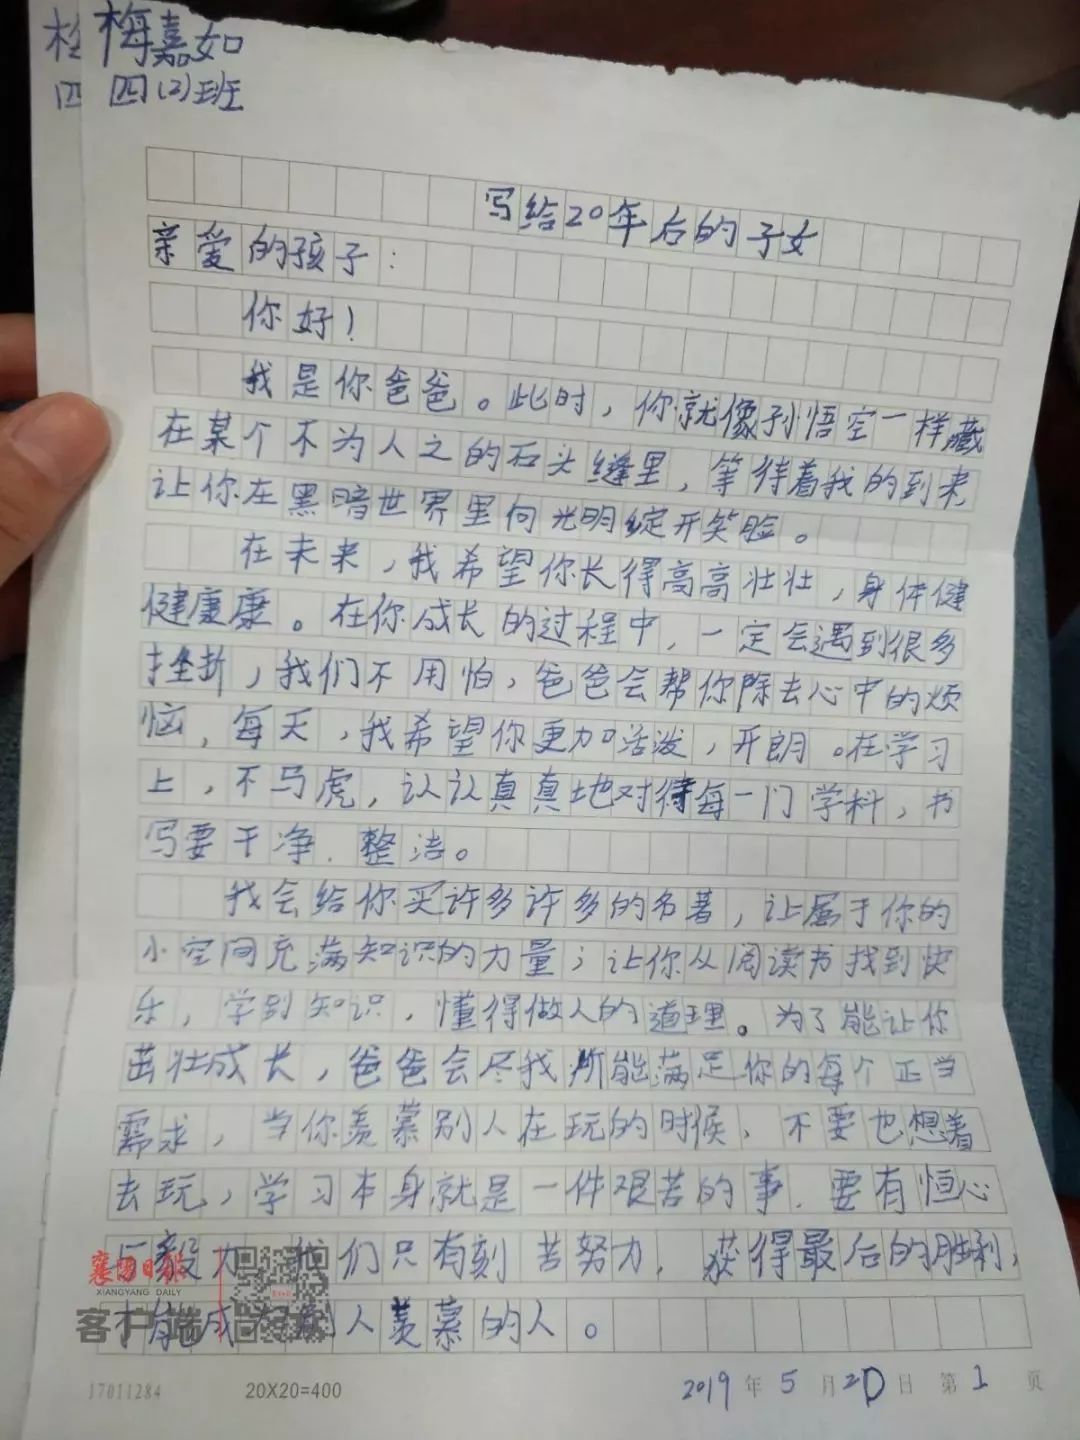 梅嘉如
四(2)班
写给20年后的子女
亲爱的孩子：
你好！
我是你爸爸。此时，你就像孙悟空一样藏
在某个不为人之的石头缝里，等待着我的到来，
让你在黑暗世界里向光明绽开笑脸。
在未来，我希望你长得高高壮壮，身体健
健康康。在你成长的过程中，一定会遇到很多
挫折，我们不用怕，爸爸会帮你除去心中的烦
恼，每天，我希望你更加活泼，开朗。在学习
上，不马虎，认认真真地对待每一门学科，书
写要干净、整洁。
我会给你买许多许多的名著，让属于你的
小空间充满知识的力量；让你从阅读书找到快
乐，学到知识，懂得做人的道理。为了能让你
茁壮成长，爸爸会尽我所能满足你的每个正当
需求，当你羡慕别人在玩的时候，不要也想着
去玩，学习本身就是一件艰苦的事，要有恒心
与毅力，我们只有刻苦努力，获得最后的胜利，
才能成为别人羡慕的人。
襄阳日报
XIANGYANG DAILY
客户端
17011284 20X20=400 2019年5月20日 第1页